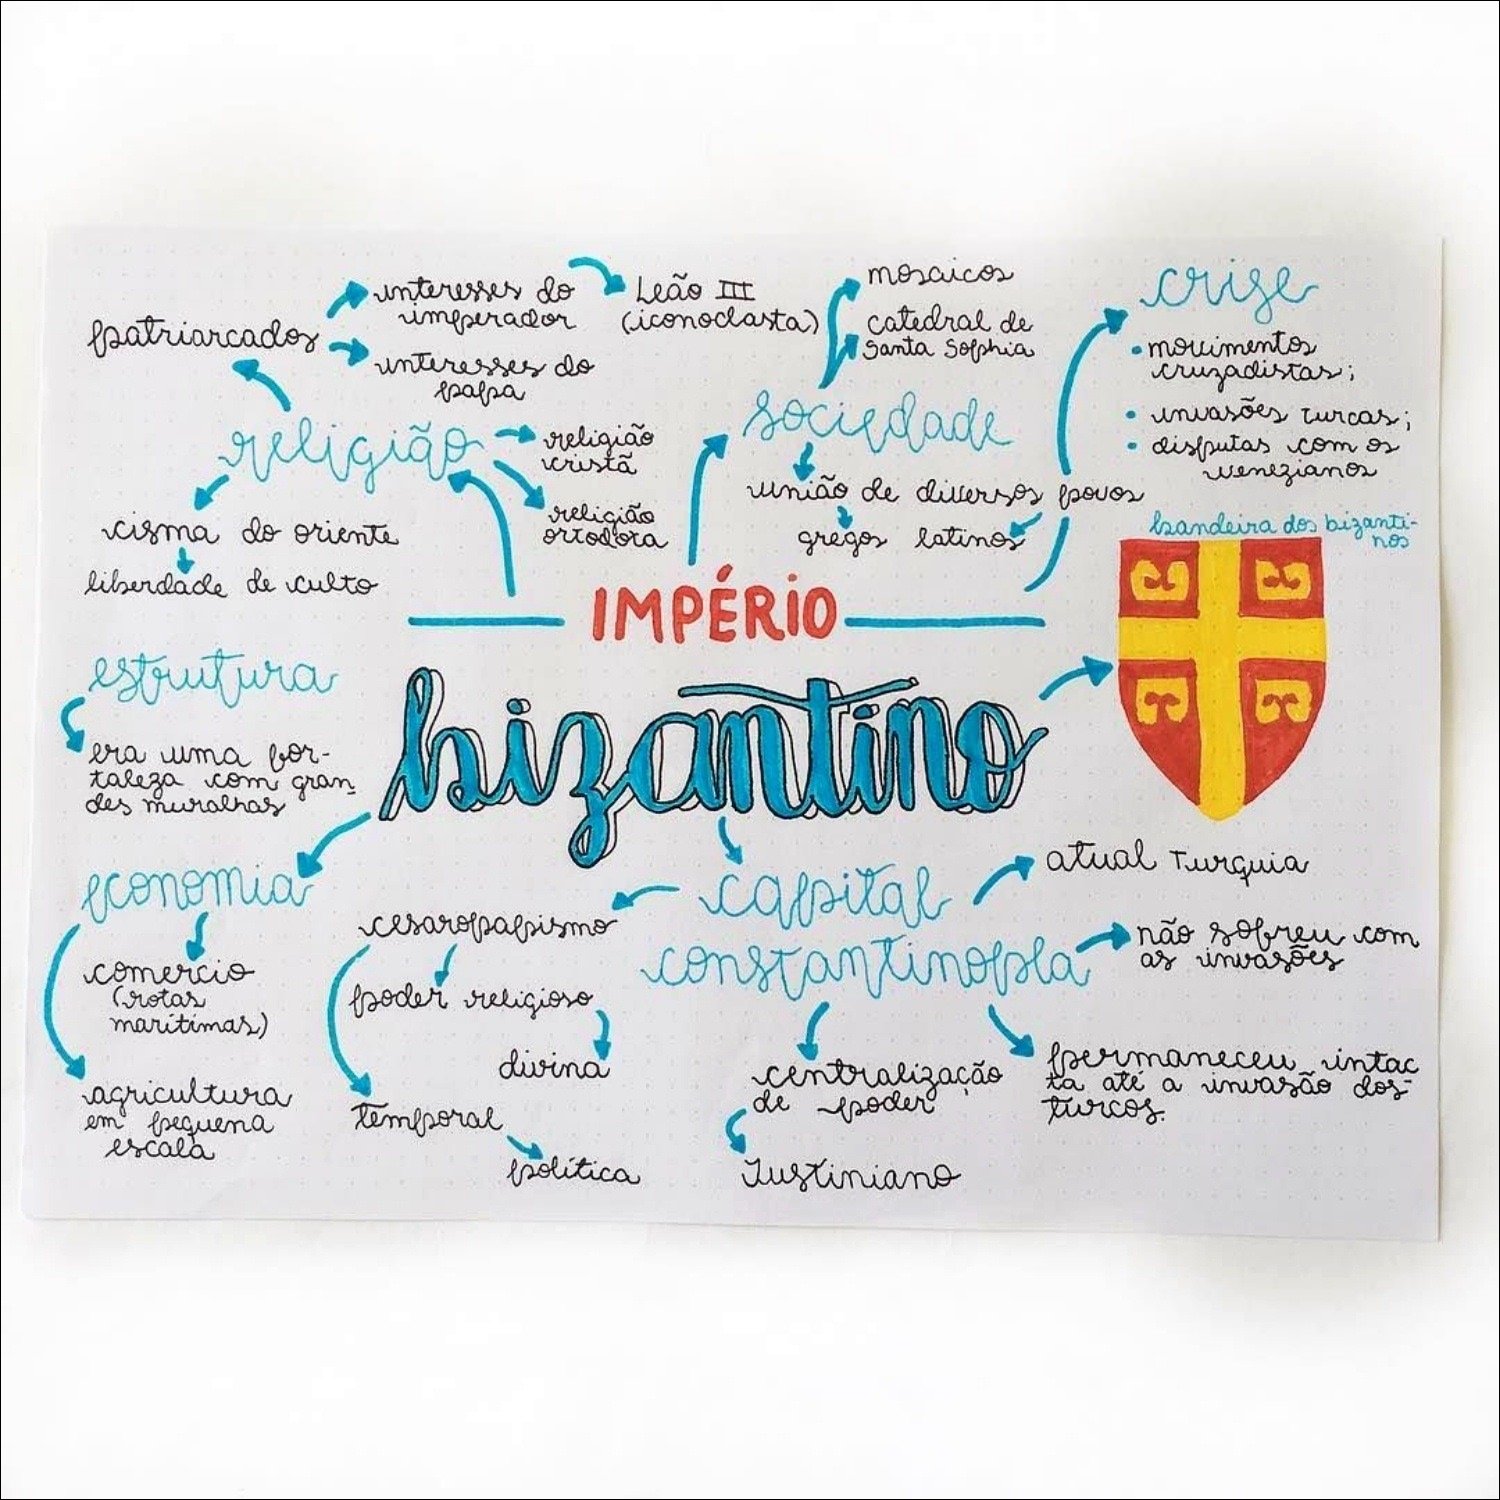 patriarcados
interesses do
imperador
interesses do
papa
Leão III
(iconoclasta)
religião
religião
cristã
religião
ortodoxa
cisma do oriente
liberdade de culto
mosaicos
catedral de
Santa Sophia
sociedade
união de diversos povos
gregos latinos
crise
• movimentos
cruzadistas;
• invasões turcas;
• disputas com os
venezianos
bandeira dos bizanti-
nos
IMPÉRIO
bizantino
estrutura
era uma for-
taleza com gran
des muralhas
economia
comercio
(rotas
marítimas)
agricultura
em pequena
escala
cesaropapismo
poder religioso
divina
temporal
política
capital
constantinopla
atual Turquia
não sofreu com
as invasões
centralização
de poder
Justiniano
permaneceu intac
ta até a invasão dos
turcos.